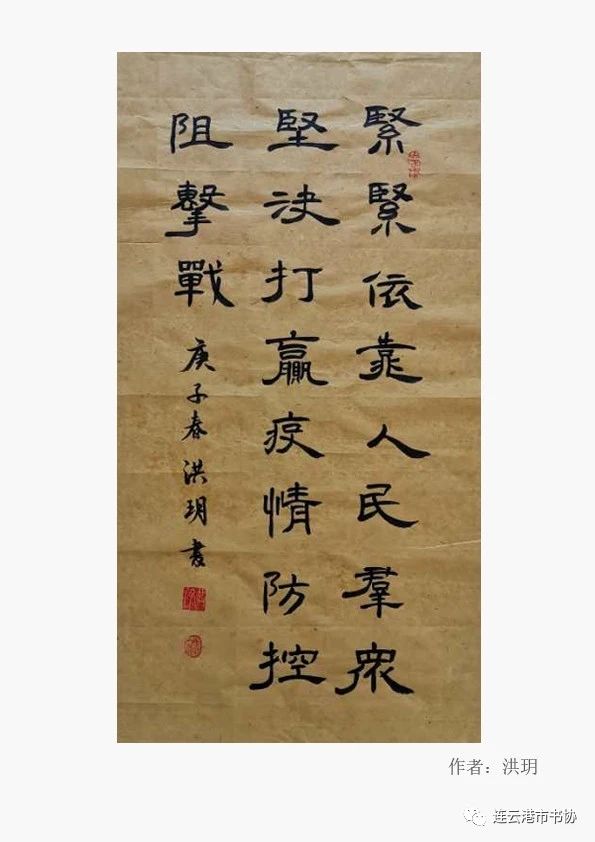 緊緊依靠人民羣衆
堅決打贏疫情防控
阻擊戰
庚子春洪玥書
作者：洪玥
连云港市书协